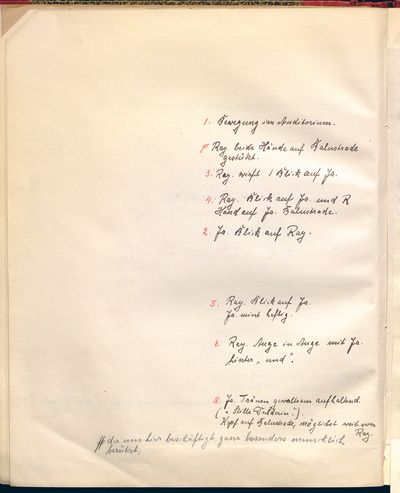 1. Bewegung im Auditorium.
Ray. beide Hände auf Balustrade
gestützt.
3. Ray. wirft 1 Blick auf Ja.
4. Ray. Blick auf Ja. und R
Hand auf Ja. Balustrade.
2. Ja. Blick auf Ray.
5. Ray. Blick auf Ja.
Ja. weint heftig.
6. Ray. Auge in Auge mit Ja.
hinter „und".
8. Ja. Tränen gewaltsam aufhaltend.
(: Stille Dulderin :).
Kopf auf Balustrade, möglichst weit von
Ray.
# da uns hier beschäftigt, ganz besonders menschlich
berührt.